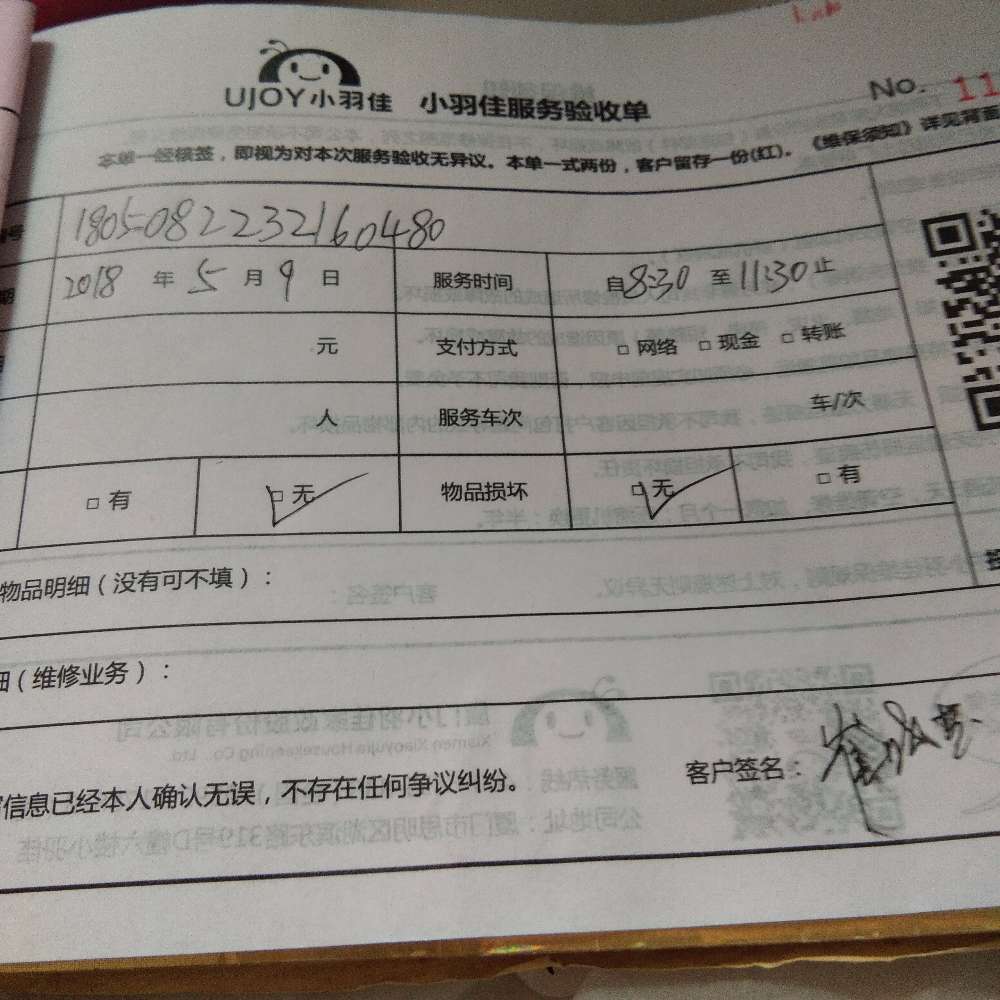 UJOY小羽佳 小羽佳服务验收单 No. 11
本单一经核签，即视为对本次服务验收无异议。本单一式两份，客户留存一份(红)。《维保须知》详见背面
号 1805082232160480
期 2018 年 5 月 9 日 服务时间 自8:30 至11:30止
元 支付方式 □ 网络 □ 现金 □ 转账
人 服务车次 车/次
□ 有 □ 无 物品损坏 □ 无 □ 有
物品明细（没有可不填）：
细（维修业务）：
信息已经本人确认无误，不存在任何争议纠纷。 客户签名：